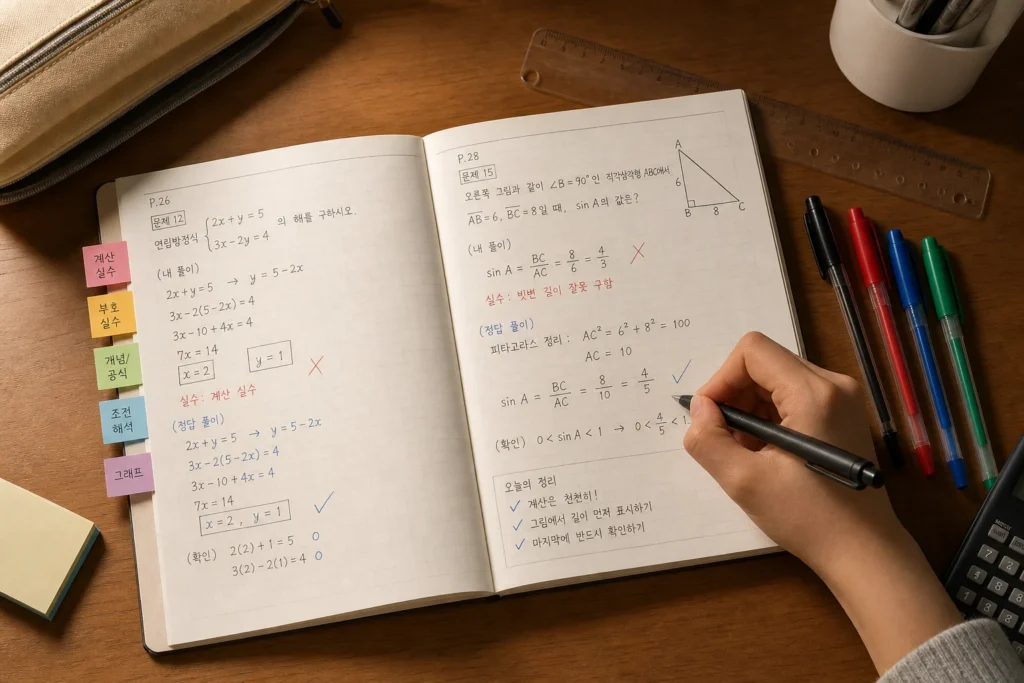 계산
실수
부호
실수
개념/
공식
조전
해석
그래프
P.26
문제 12
연립방정식 { 2x + y = 5
3x - 2y = 4 의 해를 구하시오.
(내 풀이)
2x + y = 5 → y = 5 - 2x
3x - 2(5 - 2x) = 4
3x - 10 + 4x = 4
7x = 14
x = 2 y = 1
실수: 계산 실수
(정답 풀이)
2x + y = 5 → y = 5 - 2x
3x - 2(5 - 2x) = 4
3x - 10 + 4x = 4
7x = 14
x = 2 , y = 1
(확인) 2(2) + 1 = 5 O
3(2) - 2(1) = 4 O
P.28
문제 15
오른쪽 그림과 같이 ∠B = 90°인 직각삼각형 ABC에서
AB = 6, BC = 8일 때, sin A의 값은?
A
6
B 8 C
(내 풀이)
sin A = BC/AC = 8/6 = 4/3
실수: 빗변 길이 잘못 구함
(정답 풀이)
피타고라스 정리: AC² = 6² + 8² = 100
AC = 10
sin A = BC/AC = 8/10 = 4/5
(확인) 0 < sin A < 1 → 0 < 4/5 < 1
오늘의 정리
✓ 계산은 천천히!
✓ 그림에서 길이 먼저 표시하기
✓ 마지막에 반드시 확인하기